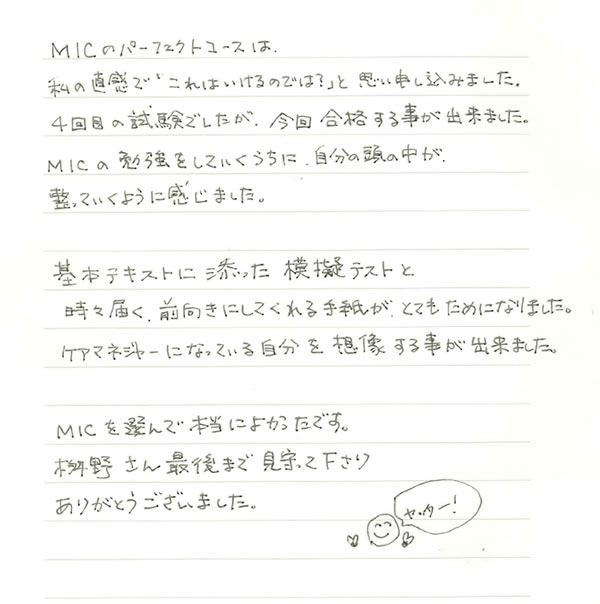 MICのパーフェクトコースは、
私の直感で「これはいけるのでは?」と 思い申し込みました。
4回目の試験でしたが、今回 合格する事が出来ました。
MICの 勉強をしていくうちに、自分の頭の中が、
整っていくように感じました。
基本テキストに 添った 模擬テストと、
時々届く、前向きにしてくれる手紙が、とてもためになりました。
ケアマネジャーになっている自分を 想像する事が出来ました。
MICを選んで本当によかったです。
桝野さん 最後まで 見守って下さり
ありがとうございました。
ヤッター!